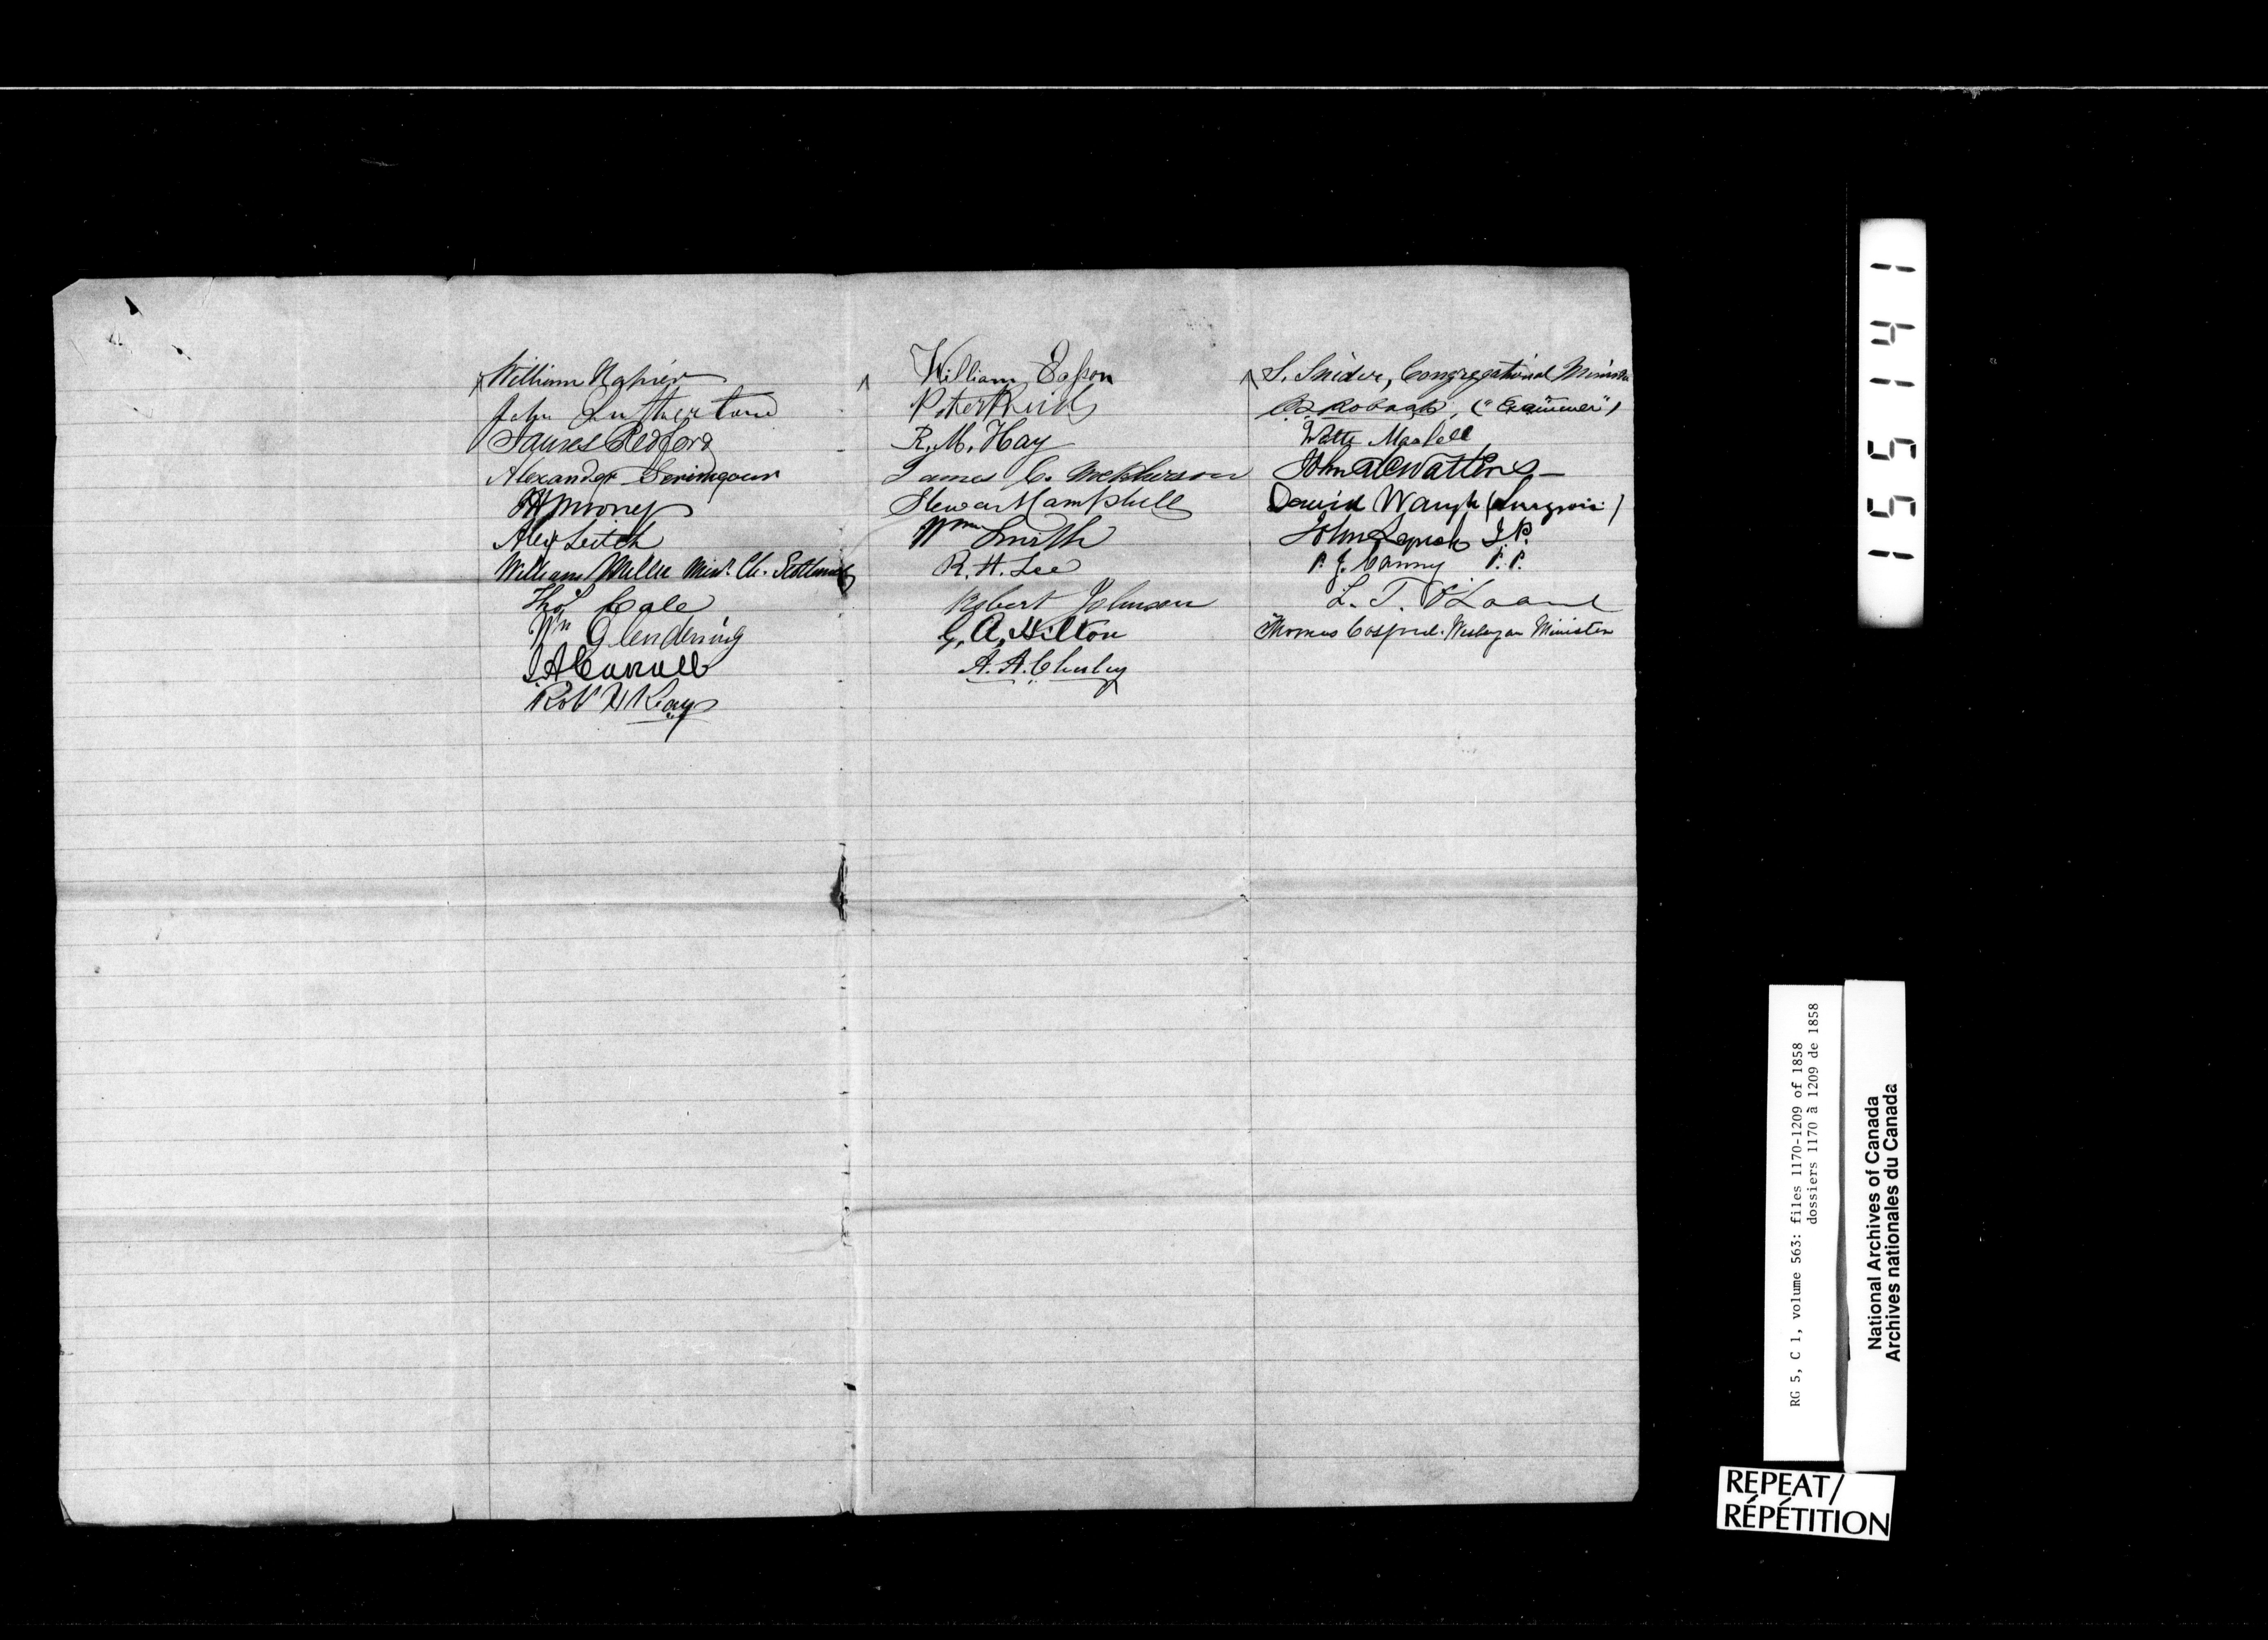 William Napier
John
James Redford
Alexander Scrimgeour
Mooney
Alex Leitch
William Miller Minr. Ch. Scotland
Thos Cale
Wm Glendening
Robt H Kay
William Easson
Peter Reid
R. M. Hay
James C. McPherson
Stewart Campbell
Wm Smith
R. H. Lee
Robert Johnson
G. A. Hilton
A. A.
S. Snider, Congregational Minister
("Examiner")
John A McWatters
David Waugh (Surgeon)
John J.P.
P. J. Canny P.P.
L. T. O'Loane
Thomas Wesleyan Minister
155141
RG 5, C 1, volume 563: files 1170-1209 of 1858
dossiers 1170 à 1209 de 1858
National Archives of Canada
Archives nationales du Canada
REPEAT/
RÉPÉTITION